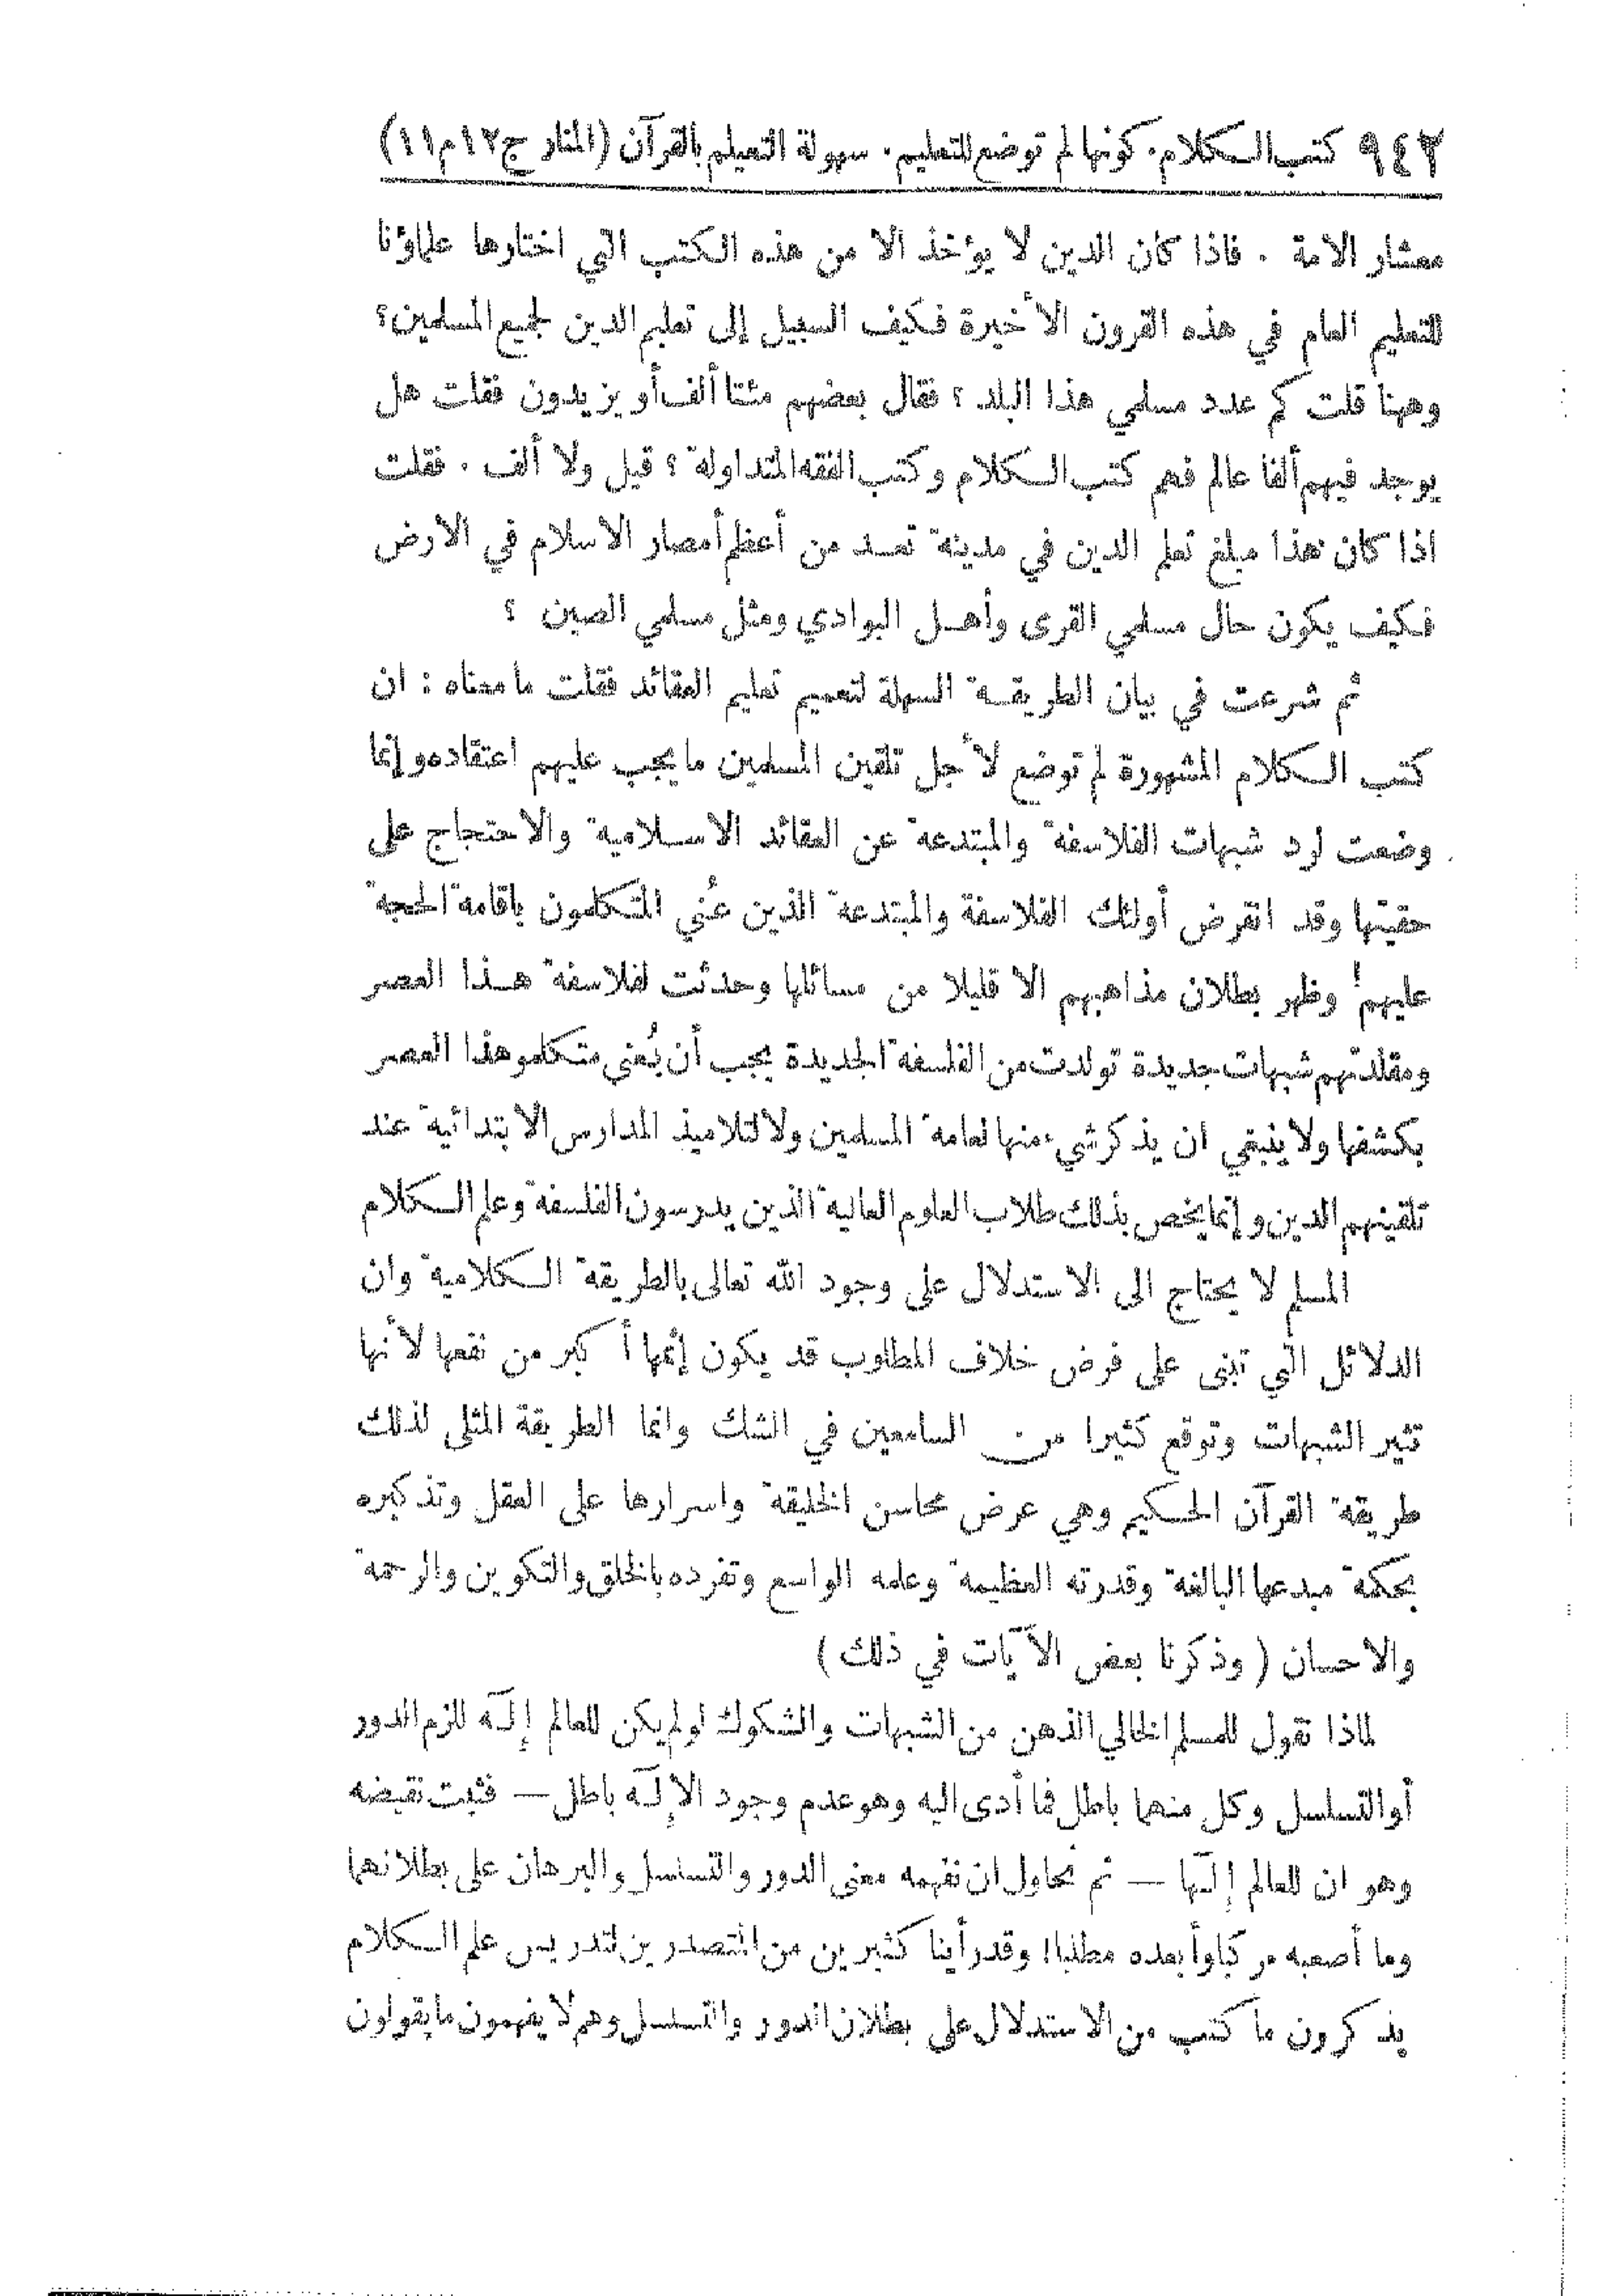 ٩٤٢ كتب الكلام. كونها لم توضع للتعليم. سهولة التعيلم بالقرآن (المنار ج١٢م١١)
معشار الامة . فاذا كان الدين لا يؤخذ الا من هذه الكتب التي اختارها علماؤنا
للتعليم العام في هذه القرون الأخيرة فكيف السبيل إلى تعليم الدين لجميع المسلمين؟
وههنا قلت كم عدد مسلمي هذا البلد ؟ فقال بعضهم مئتا ألف أو يزيدون فقلت هل
يوجد فيهم ألفا عالم فهم كتب الكلام وكتب الفقه المتداولة ؟ قيل ولا ألف . فقلت
اذا كان هذا مبلغ تعلم الدين في مدينة تعد من أعظم أمصار الاسلام في الارض
فكيف يكون حال مسلمي القرى وأهل البوادي ومثل مسلمي الصين ؟
ثم شرعت في بيان الطريقة السهلة لتعميم تعليم العقائد فقلت ما معناه : ان
كتب الكلام المشهورة لم توضع لأجل تلقين المسلمين ما يجب عليهم اعتقاده وإنما
وضعت لرد شبهات الفلاسفة والمبتدعة عن العقائد الاسلامية والاحتجاج على
حقيتها وقد انقرض أولئك الفلاسفة والمبتدعة الذين عُني المتكلمون باقامة الحجة
عليهم! وظهر بطلان مذاهبهم الا قليلا من مسائلها وحدثت لفلاسفة هذا العصر
ومقلدتهم شبهات جديدة تولدت من الفلسفة الجديدة يجب أن يُعنى متكلمو هذا العصر
بكشفها ولا ينبغي ان يذكر شيء منها لعامة المسلمين ولا لتلاميذ المدارس الابتدائية عند
تلقينهم الدين وإنما يخص بذلك طلاب العلوم العالية الذين يدرسون الفلسفة وعلم الكلام
المسلم لا يحتاج الى الاستدلال على وجود الله تعالى بالطريقة الكلامية وان
الدلائل التي تبنى على فرض خلاف المطلوب قد يكون إثمها أكبر من نفعها لأنها
تثير الشبهات وتوقع كثيرا من السامعين في الشك وانما الطريقة المثلى لذلك
طريقة القرآن الحكيم وهي عرض محاسن الخليقة واسرارها على العقل وتذكيره
بحكمة مبدعها البالغة وقدرته العظيمة وعلمه الواسع وتفرده بالخلق والتكوين والرحمة
والاحسان ( وذكرنا بعض الآيات في ذلك )
لماذا نقول للمسلم الخالي الذهن من الشبهات والشكوك لو لم يكن للعالم إلَه للزم الدور
أو التسلسل وكل منهما باطل فما أدى اليه وهو عدم وجود الإلَه باطل — فثبت نقيضه
وهو ان للعالم إلَها — ثم نحاول ان نفهمه معنى الدور والتسلسل والبرهان على بطلانهما
وما أصعبه مركبا وأبعده مطلبا! وقد رأينا كثيرين من المتصدرين لتدريس علم الكلام
يذكرون ما كتب من الاستدلال على بطلان الدور والتسلسل وهم لا يفهمون ما يقولون